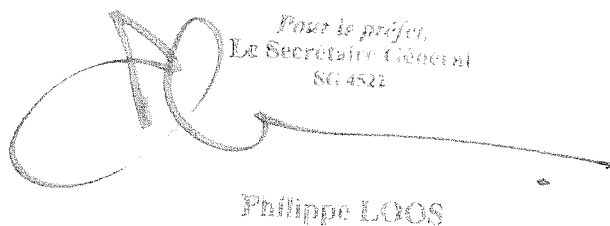 Pour le préfet,
Le Secrétaire Général
SG 4522
Philippe LOOS